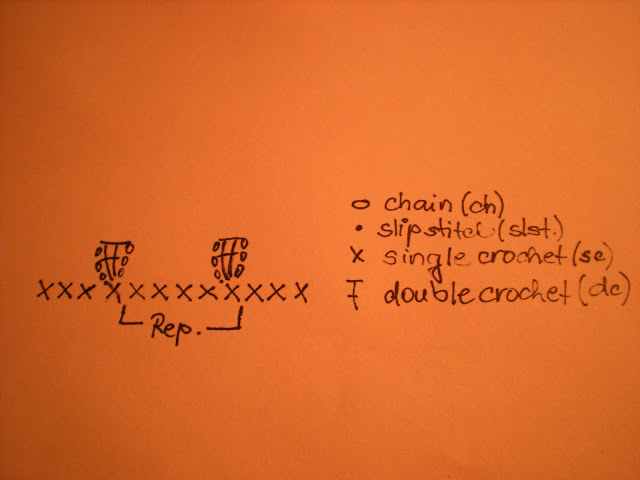 o chain (ch)
• slipstitch (slst.)
x single crochet (sc)
Ŧ double crochet (dc)
x x x x x x x x x x x x
Rep.